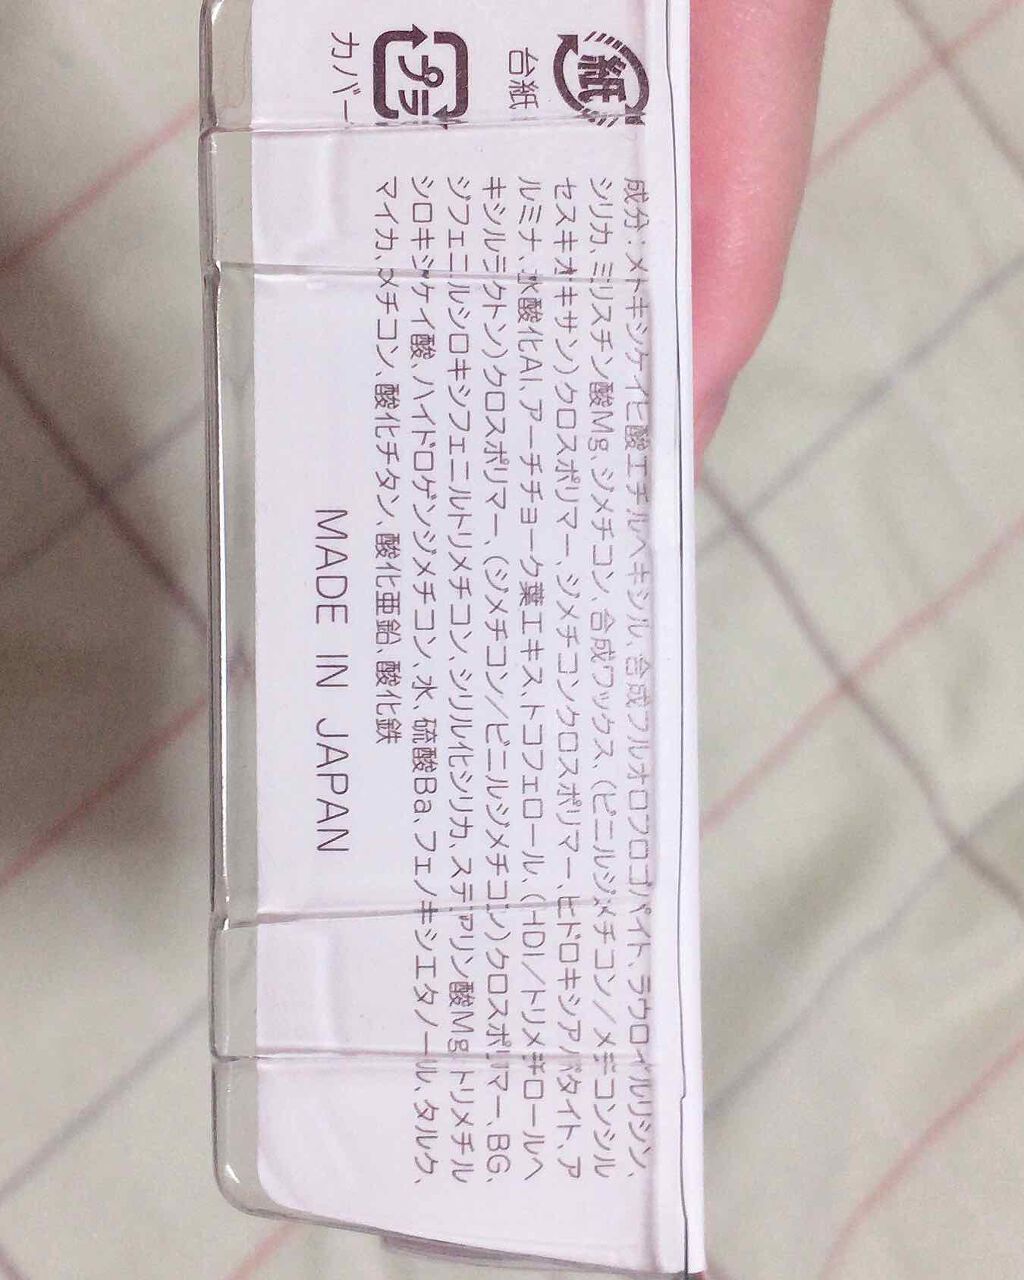 紙
台紙
プラ
カバー
成分:メトキシケイヒ酸エチルヘキシル、合成フルオロフロゴパイト、ラウロイルリシン、
シリカ、ミリスチン酸Mg、ジメチコン、合成ワックス、(ビニルジメチコン/メチコンシル
セスキオキサン)クロスポリマー、ジメチコンクロスポリマー、ヒドロキシアパタイト、ア
ルミナ、水酸化Al、アーチチョーク葉エキス、トコフェロール、(HDI/トリメチロールヘ
キシルラクトン)クロスポリマー、(ジメチコン/ビニルジメチコン)クロスポリマー、BG、
ジフェニルシロキシフェニルトリメチコン、シリル化シリカ、ステアリン酸Mg、トリメチル
シロキシケイ酸、ハイドロゲンジメチコン、水、硫酸Ba、フェノキシエタノール、タルク、
マイカ、メチコン、酸化チタン、酸化亜鉛、酸化鉄
MADE IN JAPAN